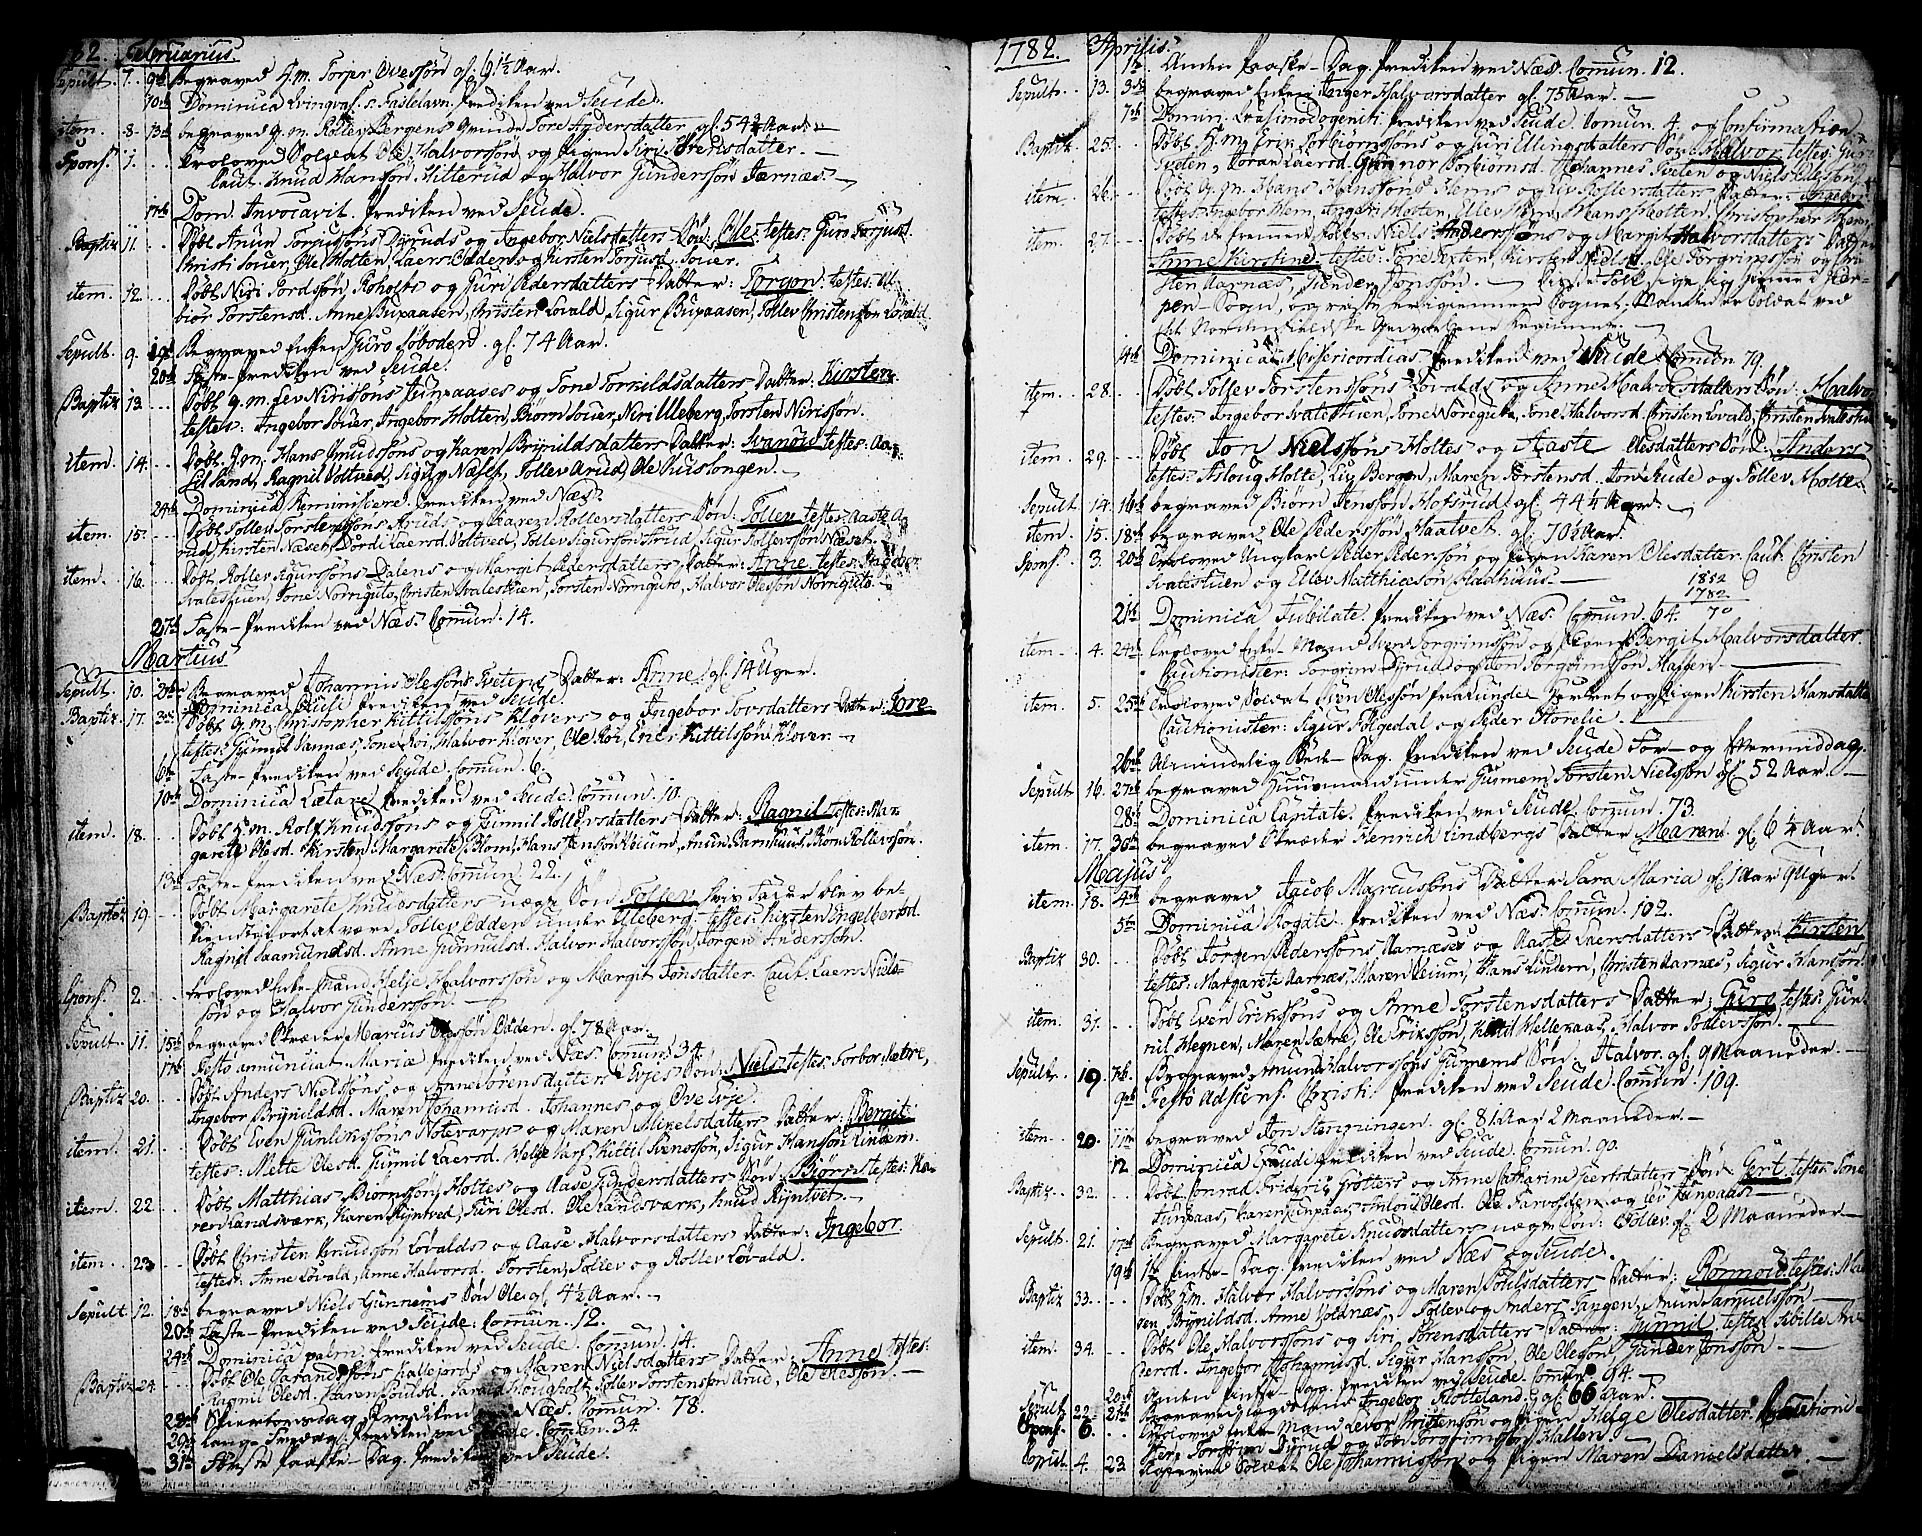 82. Februarius.
Sepult. 7. 9de Begraved G.m. Torjer Ovessøn gl. 9 1/2 Aar.
10de Dominica Qvinqvag. s. Fastelavn. Prediken ved Seude.
item. 8. 13de begraved G.m. Rollev Bergens Qvinde Tore Andersdatter gl. 54 Aar.
Sponf. 1. Troloved Soldat Ole Halvorssøn og Pigen Siri Sørensdatter.
Caut. Knud Hanssøn Hitterud og Halvor Gunderssøn Jarnæs.
17de Dom. Invocavit. Prediken ved Seude.
Baptiz. 11. Døbt Anun Torjussøns Dyruds og Ingebor Nielsdatters Søn: Ole. testes: Guro Torjusd.
Christi Souer, Ole Holten, Laers Odden og Kirsten Torjusd. Souer.
item. 12. Døbt Niri Tordssøn, Roholts og Guri Pedersdatters Datter: Torgon: testes: Al-
bior Torstensd. Anne Bupaasen, Christen Lovald, Sigur Bupaasen, Tollev Christensen Lovald.
Sepult. 9. 19de Begraved Enken Guro Soboden. gl. 74 Aar.
20de Faste-Prediken ved Seude.
Baptiz 13. Døbt G.m. Lev Nirissøns Tunpaases og Tone Torkildsdatters Datter: Kirsten.
testes: Ingebor Souer, Ingebor Holten, Biørn Souer, Niri Ulleberg, Torsten Nirissøn.
item. 14. Døbt G.m. Hans Knudssøns og Karen Brynildsdatters Datter: Svanou testes: Aa
Lilland, Ragnil Voltved, Sigur Næset, Tollev Arud, Ole Huuslongen.
24de Dominica Reminiscere. Prediken ved Næs.
item. 15. Døbt Tollev Torstenssøns Aruds og Karen Rollevsdatters Søn: Tollev testes: Aaste A
rud, Kirsten Næset, Tordi Laersd. Voltved, Tollev Sigurssøn Arud, Sigur Tollevssøn Næset.
item. 16. Døbt Rollev Sigurssøns Dalens og Margit Pedersdatters Datter: Anne testes: Ingebor
Svatestuen, Tone Norngulv, Christen Svalestuen, Torsten Norngulv, Halvor Olessøn Norngulv.
27de Faste-Prediken ved Næs. Comun. 14.
Martius
Sepult. 10. 2den Begraved Johannis Olessøns Tvetens Datter: Anne. gl. 14 Uger.
Dominica Oculi Prediken ved Seude.
Baptiz. 17. 3de Døbt G.m. Christopher Kittilssøns Kløvers og Ingebor Tovsdatters Datter: Tore
testes: Gunnil Vannæs, Tone Roi, Halvor Kløver, Ole Roi, Ener Kittilssøn Kløver.
6te Faste-Prediken ved Seude. Comun. 6.
10de Dominica Lætare Prediken ved Seude. Comun. 10.
item. 18. Døbt H.m. Rolf Knudssøns og Gunnil Rollevsdatters Datter: Ragnil testes: Mar
garete Olesd. Kirsten Margarete Blom, Hans Jenssøn, Anun Barnhuus, Biørn Rollevssøn.
13de Faste-Prediken ved Næs. Comun. 22.
Baptiz 19. Døbt Margarete Knudsdatters uægte Søn Tollev, hvis Fader blev be-
kiendtgiort at være Tollev Odden under Uleberg. testes: Kirsten Engelbertsd.
Ragnil Saamundsd. Anne Gunnulsd. Halvor Halvorssøn, Jørgen Anderssøn.
Sponf. 2. troloved Enke-Mand Helje Halvorssøn og Margit Jonsdatter. Caut. Laers Niels-
søn og Halvor Gunderssøn.
Sepult. 11. 15de begraved Stræder Marcus Olessøn Odden. gl. 78 Aar.
17de Festo annunciat. Mariæ Prediken ved Næs. Comun. 34.
Baptiz 20. Døbt Anders Nielssøns og Anne Sørensdatters Evjes Søn: Niels testes: Torbor Sætre,
Ingebor Brynildsd. Maren Johannisd. Johannes og Ove Evje.
item. 21. Døbt Even Gunlikssøns Notevarps og Maren Mikelsdatters Datter: Bergit
testes: Mette Olesd. Gunnil Laersd. Helge Varp, Kittil Svenssøn, Sigur Hanssøn Lindem.
item. 22. Døbt Matthias Biørnssøn, Holtes og Aase Gundersdatters Søn: Biørn testes: Ka
ren Landsværk, Karen Ryntvet, Siri Olesd. Ole Landsværk, Knud Ryntvet.
item. 23. Døbt Christen Knudssøn Lovalds og Aase Halvorsdatters Datter: Ingebor
testes: Anne Lovald, Anne Halvorsd. Torsten, Tollev og Rollev Lovald.
Sepult. 12. 18de begraved Niels Gunnems Søn Ole gl. 4 1/2 Aar.
20de Faste-Prediken ved Seude: Comun. 12.
24de Dominica palm. Prediken ved Seude. Comun. 14.
Baptiz 24. Døbt Ole Jarandssøns Kallejords og Maren Nielsdatters Datter: Anne testes:
Ragnil Olesd. Karen Poulsd. Jarald Hougholt, Tollev Torstenssøn Arud, Ole Olessøn.
28de Skiertorsdag Prediken ved Næs. Comun. 78.
29de Lang-Fredag Prediken ved Seude. Comun. 34.
31te Første Paaske-Dag Prediken ved Seude.
1782. Aprilis.
1te Anden Paaske-Dag Prediken ved Næs. Comun. 12.
Sepult. 13. 3de begraved Enken Inger Halvorsdatter gl. 75 Aar.
7de Domin: Quasimodogeniti Prediken ved Seude. Comun. 4 og Confirmation.
Baptiz 25. Døbt H.m. Erik Torbiørnssøns og Guri Ellingsdatters Søn: Halvor testes: Guri
Tveten, Joran Laersd. Gunnor Torbiørnsd. Johannes Tveten og Niels Ellingssøn.
item. 26. Døbt G.m. Hans Hanssøns Hems og Liv Rollevsdatters Datter: Ingebor
testes: Ingebor Hem, Ingeri Holten, Ellev Hem, Hans Holten, Christopher Hem.
item. 27. Døbt de fremmed Folks: Niels Anderssøns og Margit Halvorsdatters Datter
Anne Kirstine. testes: Tore Axten, Kirsten Nielsd. Ole Torgrimssøn og Chri-
sten Aarnæs, Gunder Jonssøn. Disse Folk sige sig hiemme i Sar-
pen-Sogn, og reiste her igiennem Sognet. Manden er Soldat ved
det Nordenfieldske Gevorbene Regimente.
14de Dominica Misericordias Prediken ved Seude Comun 79.
item. 28. Døbt Tollev Torstenssøns Lovalds og Anne Halvorsdatters Søn: Halvor
testes: Ingebor Svalestuen, Tone Noregulv, Tone Halvorsd. Christen Lovald, Christen Svalestuen
item. 29. Døbt Jon Nielssøns Holtes og Aaste Olesdatters Søn: Anders
testes: Aslaug Holte, Liv Bergen, Maren Torstensd. Jon Seude og Tollev Holte.
Sepult. 14. 16de begraved Biørn Jenssøn Hofsrud gl. 44 1/4 Aar.
item. 15. 18de begraved Ole Pederssøn Haatvet. gl. 70 1/2 Aar.
Sponf. 3. 20de Troloved Ungkar Peder Pederssøn og Pigen Karen Olesdatter. Caut. Christen
Svalestuen og Ellev Matthiessøn Raadhuus.
1852
1782
70
21de Dominica Jubilate. Prediken ved Næs. Comun. 64.
item. 4. 24de Troloved Enke-Mand Sven Torgrimssøn og Pigen Bergit Halvorsdatter
Cautionister: Torgrim Dyrud og Jon Torgrimssøn Hassen.
item. 5. 25de Troloved Soldat Sven Olessøn fra Lunde Hærret og Pigen Kirsten Hansdatter
Cautionister: Sigur Følgedal og Peder Storelie.
26de Almindelig Bede-Dag. Prediken ved Seude For- og Eftermiddag.
Sepult. 16. 27de begraved Huusmand under Gunnem, Torsten Nielssøn gl. 52 Aar.
28de Dominica Cantate. Prediken ved Seude. Comun. 73.
item. 17. 30de begraved Stræder Henrich Lindbergs Datter Maren. gl. 6 1/4 Aar.
Majus
item. 18. 4de begraved Jacob Marcussøns Datter Sara Maria gl. 1 Aar 9 Uger.
5te Dominica Rogate. Prediken ved Næs. Comun. 102.
Baptiz 30. Døbt Jørgen Pederssøns Aarnæses og Aaste Laersdatters Datter: Kirsten
testes: Margarete Aarnæs, Maren Leium, Hans Lindem, Christen Aarnæs, Sigur Hanssøn.
item. 31. Døbt Even Erikssøns og Anne Torstensdatters Datter: Guro testes: Gun-
nil Hegnen, Maren Sætre, Ole Erikssøn, Knud Hellekaas, Halvor Tollevssøn.
Sepult 19. 7de Begraved Anund Halvorssøns Gunnems Søn: Halvor. gl. 9 Maaneder.
9de Festo Adscens. Christi. Prediken ved Seude. Comun. 109.
item. 20. 11te begraved Jon Stenningen. gl. 81 Aar 2 Maaneder.
12. Dominica Exaudi. Prediken ved Seude. Comun. 90.
Baptiz. 32. Døbt Conrad Friderik Grotters og Anne Catharina Geertsdatters Søn: Gert testes: Tone
Tunpaas, Karen Tunpaas, Aslou Olesd. Ole Farvolden og Lev Tunpaas.
Sepult. 21. 17de Begraved Margarete Knudsdatters uægte Søn: Tollev. gl. 2 Maaneder.
19de 1te Pintse-Dag. Prediken ved Næs og Seude.
Baptiz 33. Døbt H.m. Halvor Halvorssøns og Maren Poulsdatters Datter: Ronnou: testes: Ma
ren Brynildsd. Anne Voldnæs, Tollev og Anders Tangen, Anun Samuelssøn.
item. 34. Døbt Ole Halvorssøns og Siri Sørensdatters Datter: Gunnil. testes: Sibille An-
dersd. Ingebor Johannisd. Sigur Hanssøn, Ole Olessøn, Gunder Jonssøn.
20de Anden Pintse-Dag. Prediken ved Seude. Comun. 94.
Sepult. 22. 21de Begraved Ingebor Flotteland. gl. 66 Aar.
Sponf. 6. Troloved Enke-Mand Levor Christenssøn og Pigen Helge Olesdatter. Cautioni-
ster: Torstein Dyrud og Jon Torgrimssøn Hallen.
Copul. 4. 23. Copuleret Soldat Ole Johannissøn og Pigen Maren Danielsdatter.